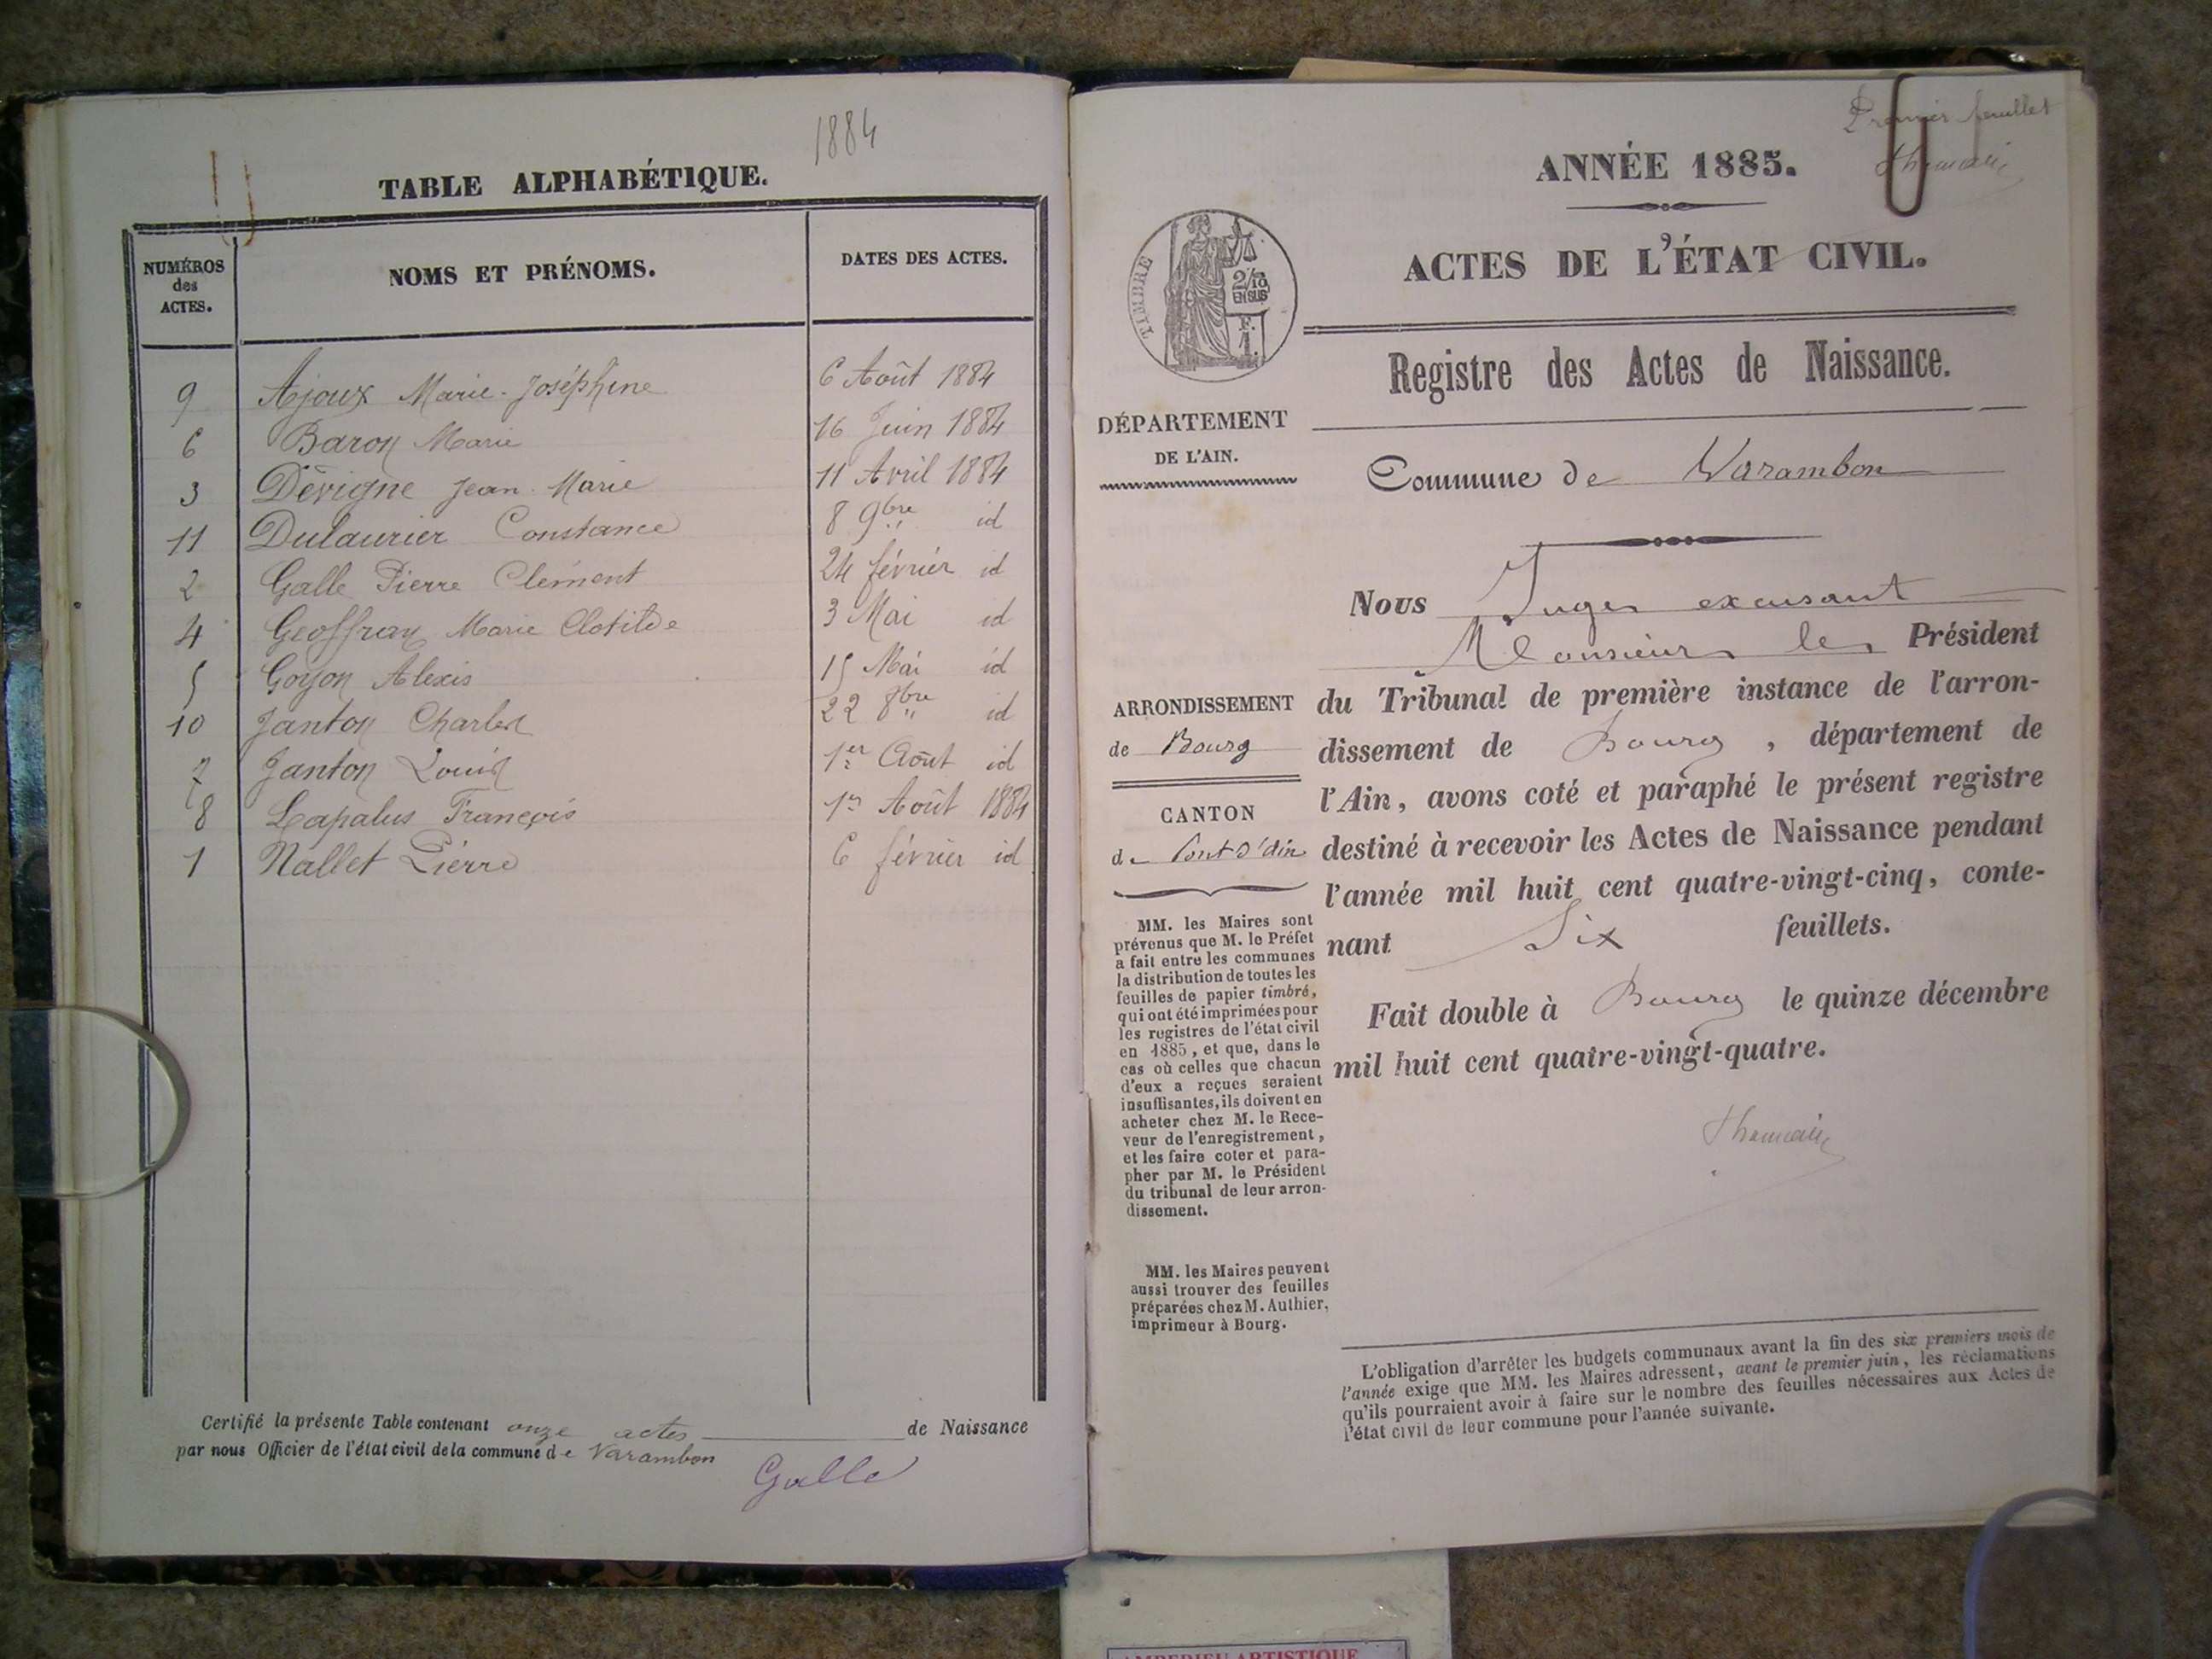 1884
TABLE ALPHABÉTIQUE.
NUMÉROS des ACTES. NOMS ET PRÉNOMS. DATES DES ACTES.
9 Ajoux Marie-Joséphine 6 Août 1884
6 Baron Marie 16 Juin 1884
3 Dévigne Jean-Marie 11 Avril 1884
11 Dulaurier Constance 8 9bre id
2 Galle Pierre Clément 24 février id
4 Geoffray Marie Clotilde 3 Mai id
5 Goyon Alexis 15 Mai id
10 Janton Charles 22 8bre id
7 Janton Louis 1er Août id
8 Lapalus François 1er Août 1884
1 Nallet Pierre 6 février id
Certifié la présente Table contenant onze actes de Naissance
par nous Officier de l'état civil de la commune de Varambon
Galle
Premier feuillet
ANNÉE 1885.
ACTES DE L'ÉTAT CIVIL.
TIMBRE
2/10
EN SUS
F.
1.
Registre des Actes de Naissance.
DÉPARTEMENT
DE L'AIN.
Commune de Varambon
Nous Juge excusant
Monsieur le Président
du Tribunal de première instance de l'arron-
dissement de Bourg, département de
l'Ain, avons coté et paraphé le présent registre
destiné à recevoir les Actes de Naissance pendant
l'année mil huit cent quatre-vingt-cinq, conte-
nant Six feuillets.
Fait double à Bourg le quinze décembre
mil huit cent quatre-vingt-quatre.
ARRONDISSEMENT
de Bourg
CANTON
de Pont-d'Ain
MM. les Maires sont
prévenus que M. le Préfet
a fait entre les communes
la distribution de toutes les
feuilles de papier timbré,
qui ont été imprimées pour
les registres de l'état civil
en 1885, et que, dans le
cas où celles que chacun
d'eux a reçues seraient
insuffisantes, ils doivent en
acheter chez M. le Rece-
veur de l'enregistrement,
et les faire coter et para-
pher par M. le Président
du tribunal de leur arron-
dissement.
MM. les Maires peuvent
aussi trouver des feuilles
préparées chez M. Authier,
imprimeur à Bourg.
L'obligation d'arrêter les budgets communaux avant la fin des six premiers mois de
l'année exige que MM. les Maires adressent, avant le premier juin, les réclamations
qu'ils pourraient avoir à faire sur le nombre des feuilles nécessaires aux Actes de
l'état civil de leur commune pour l'année suivante.